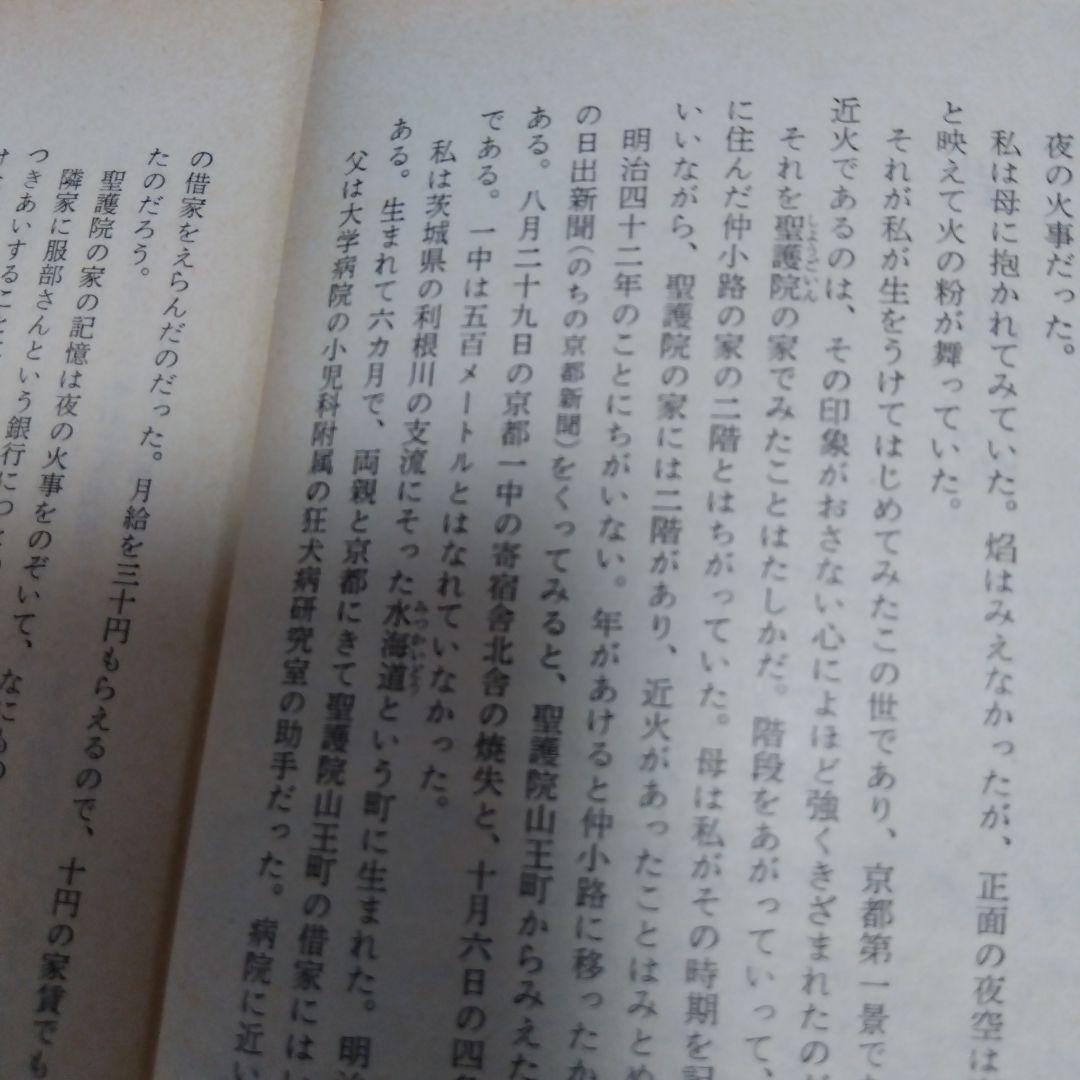 夜の火事だった。
私は母に抱かれてみていた。焰はみえなかったが、正面の夜空は
と映えて火の粉が舞っていた。
それが私が生をうけてはじめてみたこの世であり、京都第一景で
近火であるのは、その印象がおさない心によほど強くきざまれたの
それを聖護院の家でみたことはたしかだ。階段をあがっていって、
に住んだ仲小路の家の二階とはちがっていた。母は私がその時期を記
いいながら、聖護院の家には二階があり、近火があったことはみとめ
明治四十二年のことにちがいない。年があけると仲小路に移ったか
の日出新聞（のちの京都新聞）をくってみると、聖護院山王町からみえた
ある。八月二十九日の京都一中の寄宿舎北舎の焼失と、十月六日の四
である。一中は五百メートルとはなれていなかった。
私は茨城県の利根川の支流にそった水海道という町に生まれた。明治
ある。生まれて六カ月で、両親と京都にきて聖護院山王町の借家には
父は大学病院の小児科附属の狂犬病研究室の助手だった。病院に近い
の借家をえらんだのだった。月給を三十円もらえるので、十円の家賃でも
たのだろう。
聖護院の家の記憶は夜の火事をのぞいて、なにもの
隣家に服部さんという銀行につ
つきあいすること